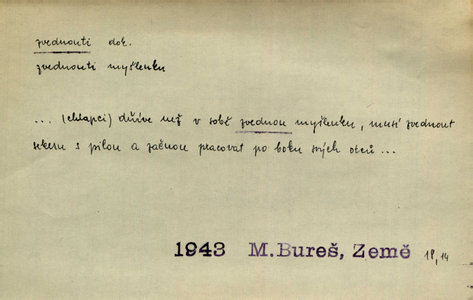 zvednouti dok.
zvednouti myšlenku
... (chlapci) dříve než v sobě zvednou myšlenku, musí zvednout
sekeru s pilou a začnou pracovat po boku svých otců ...
1943 M. Bureš, Země 18, 14